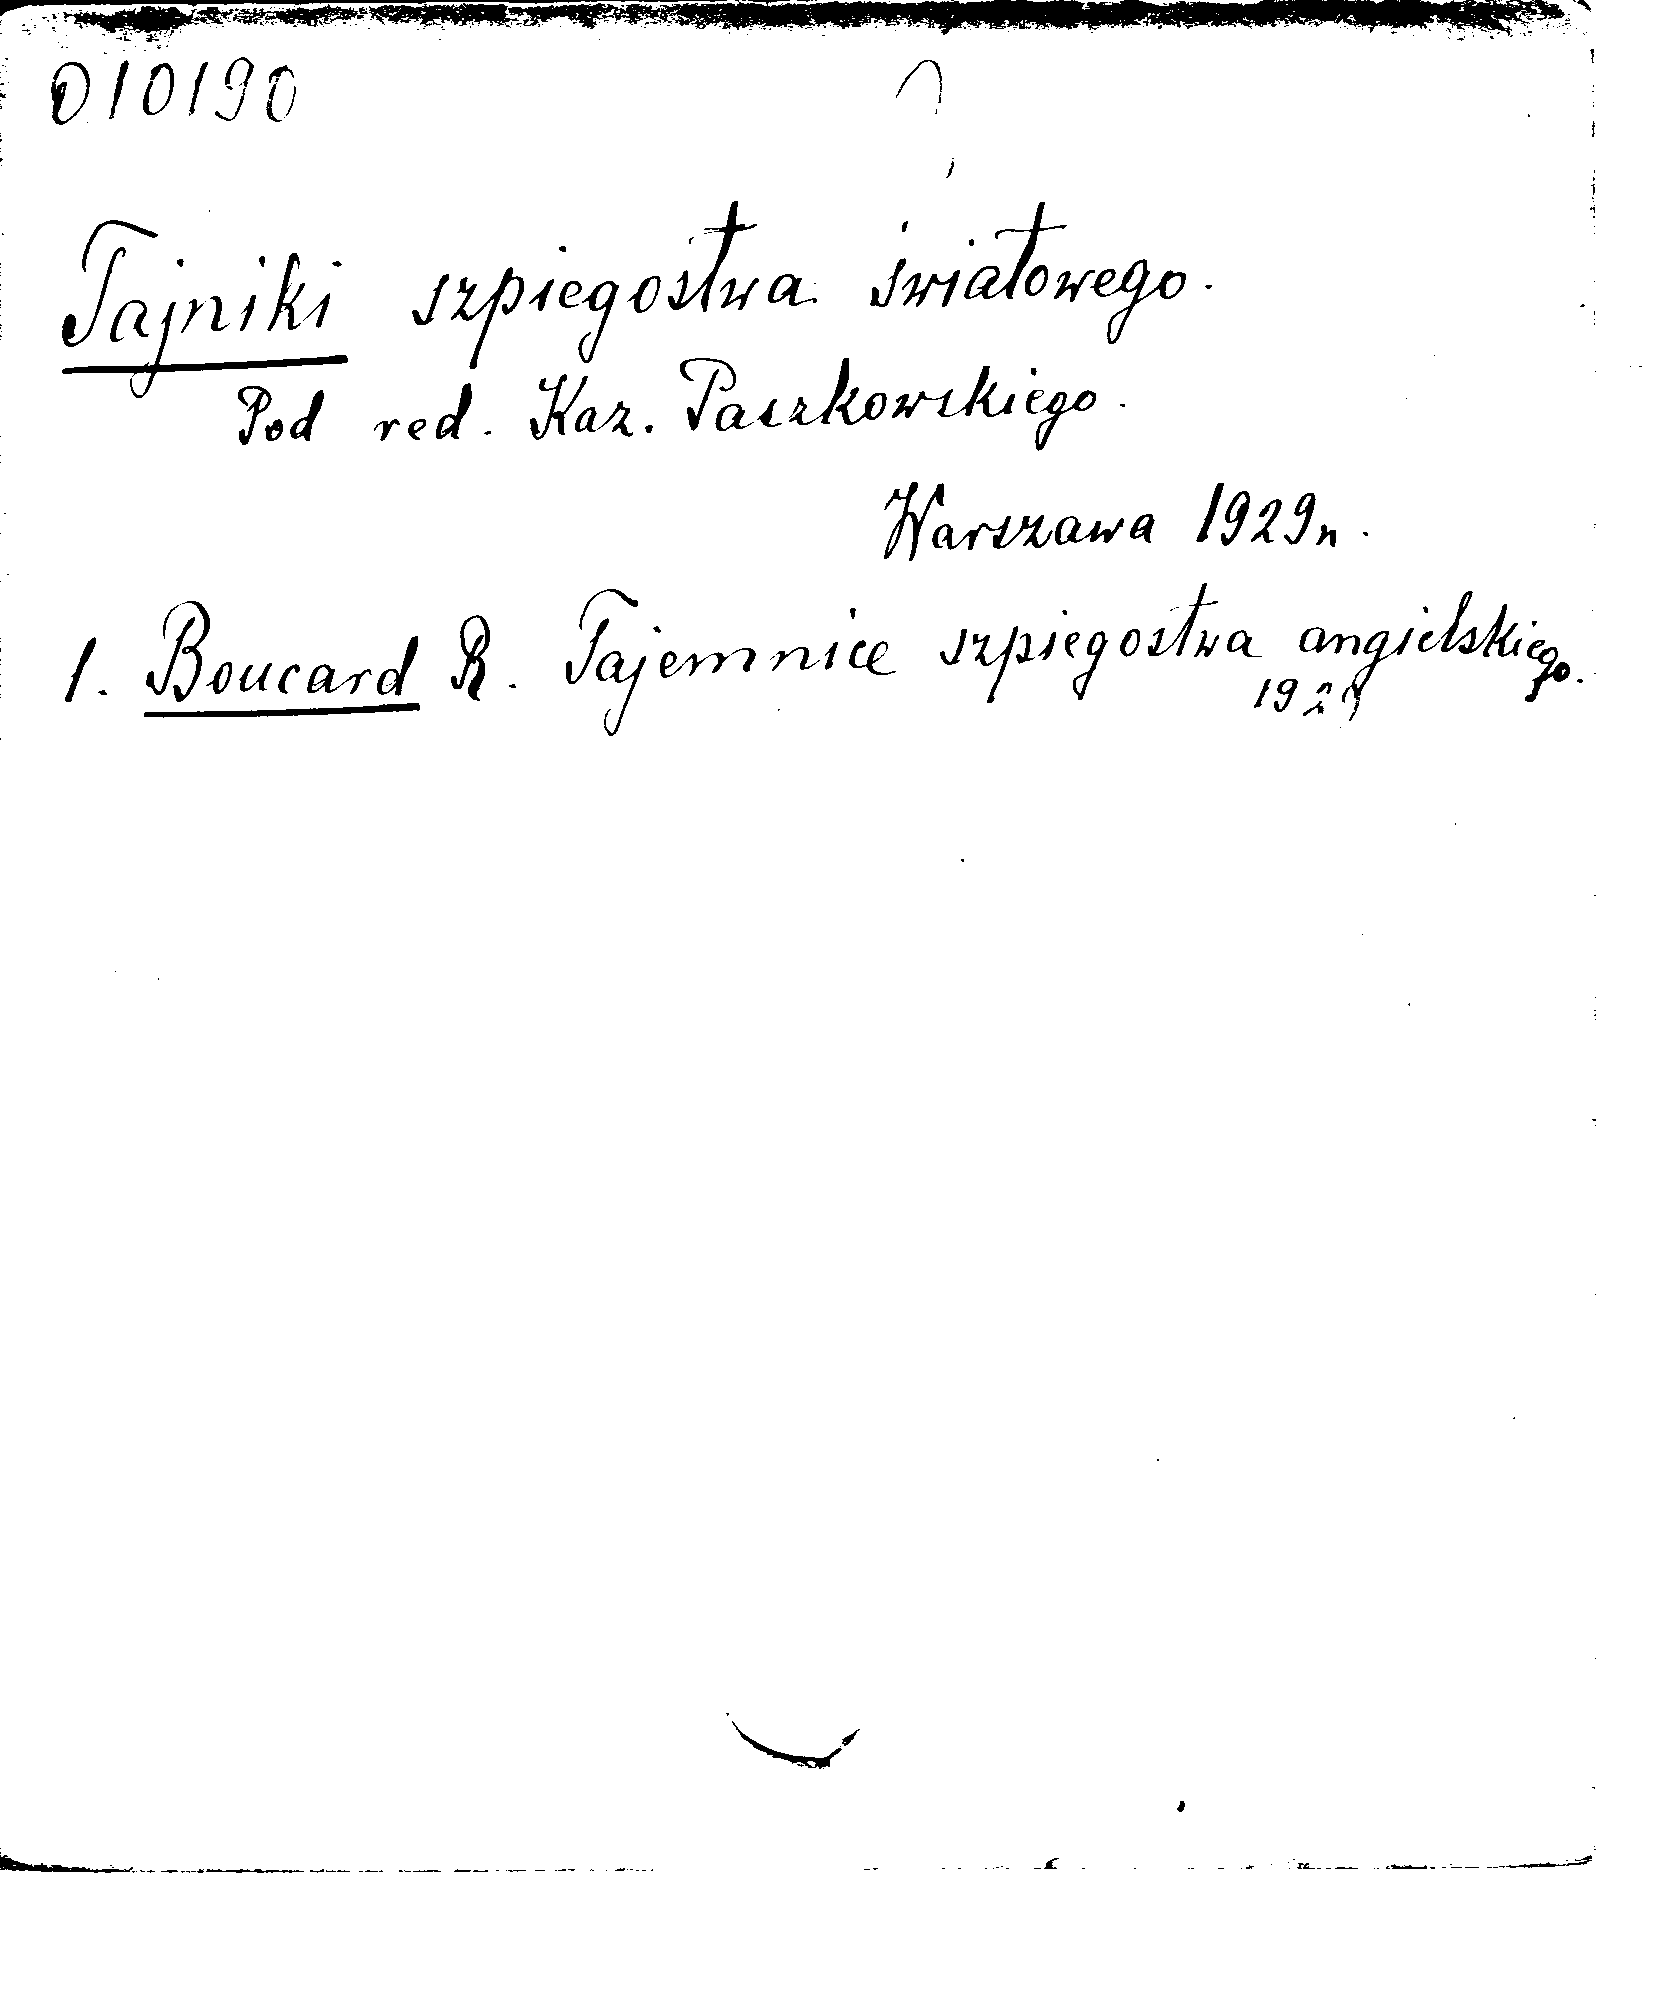 010190
Tajniki szpiegostwa światowego.
Pod red. Kaz. Paszkowskiego.
Warszawa 1929 r.
1. Boucard R. Tajemnice szpiegostwa angielskiego.
1929